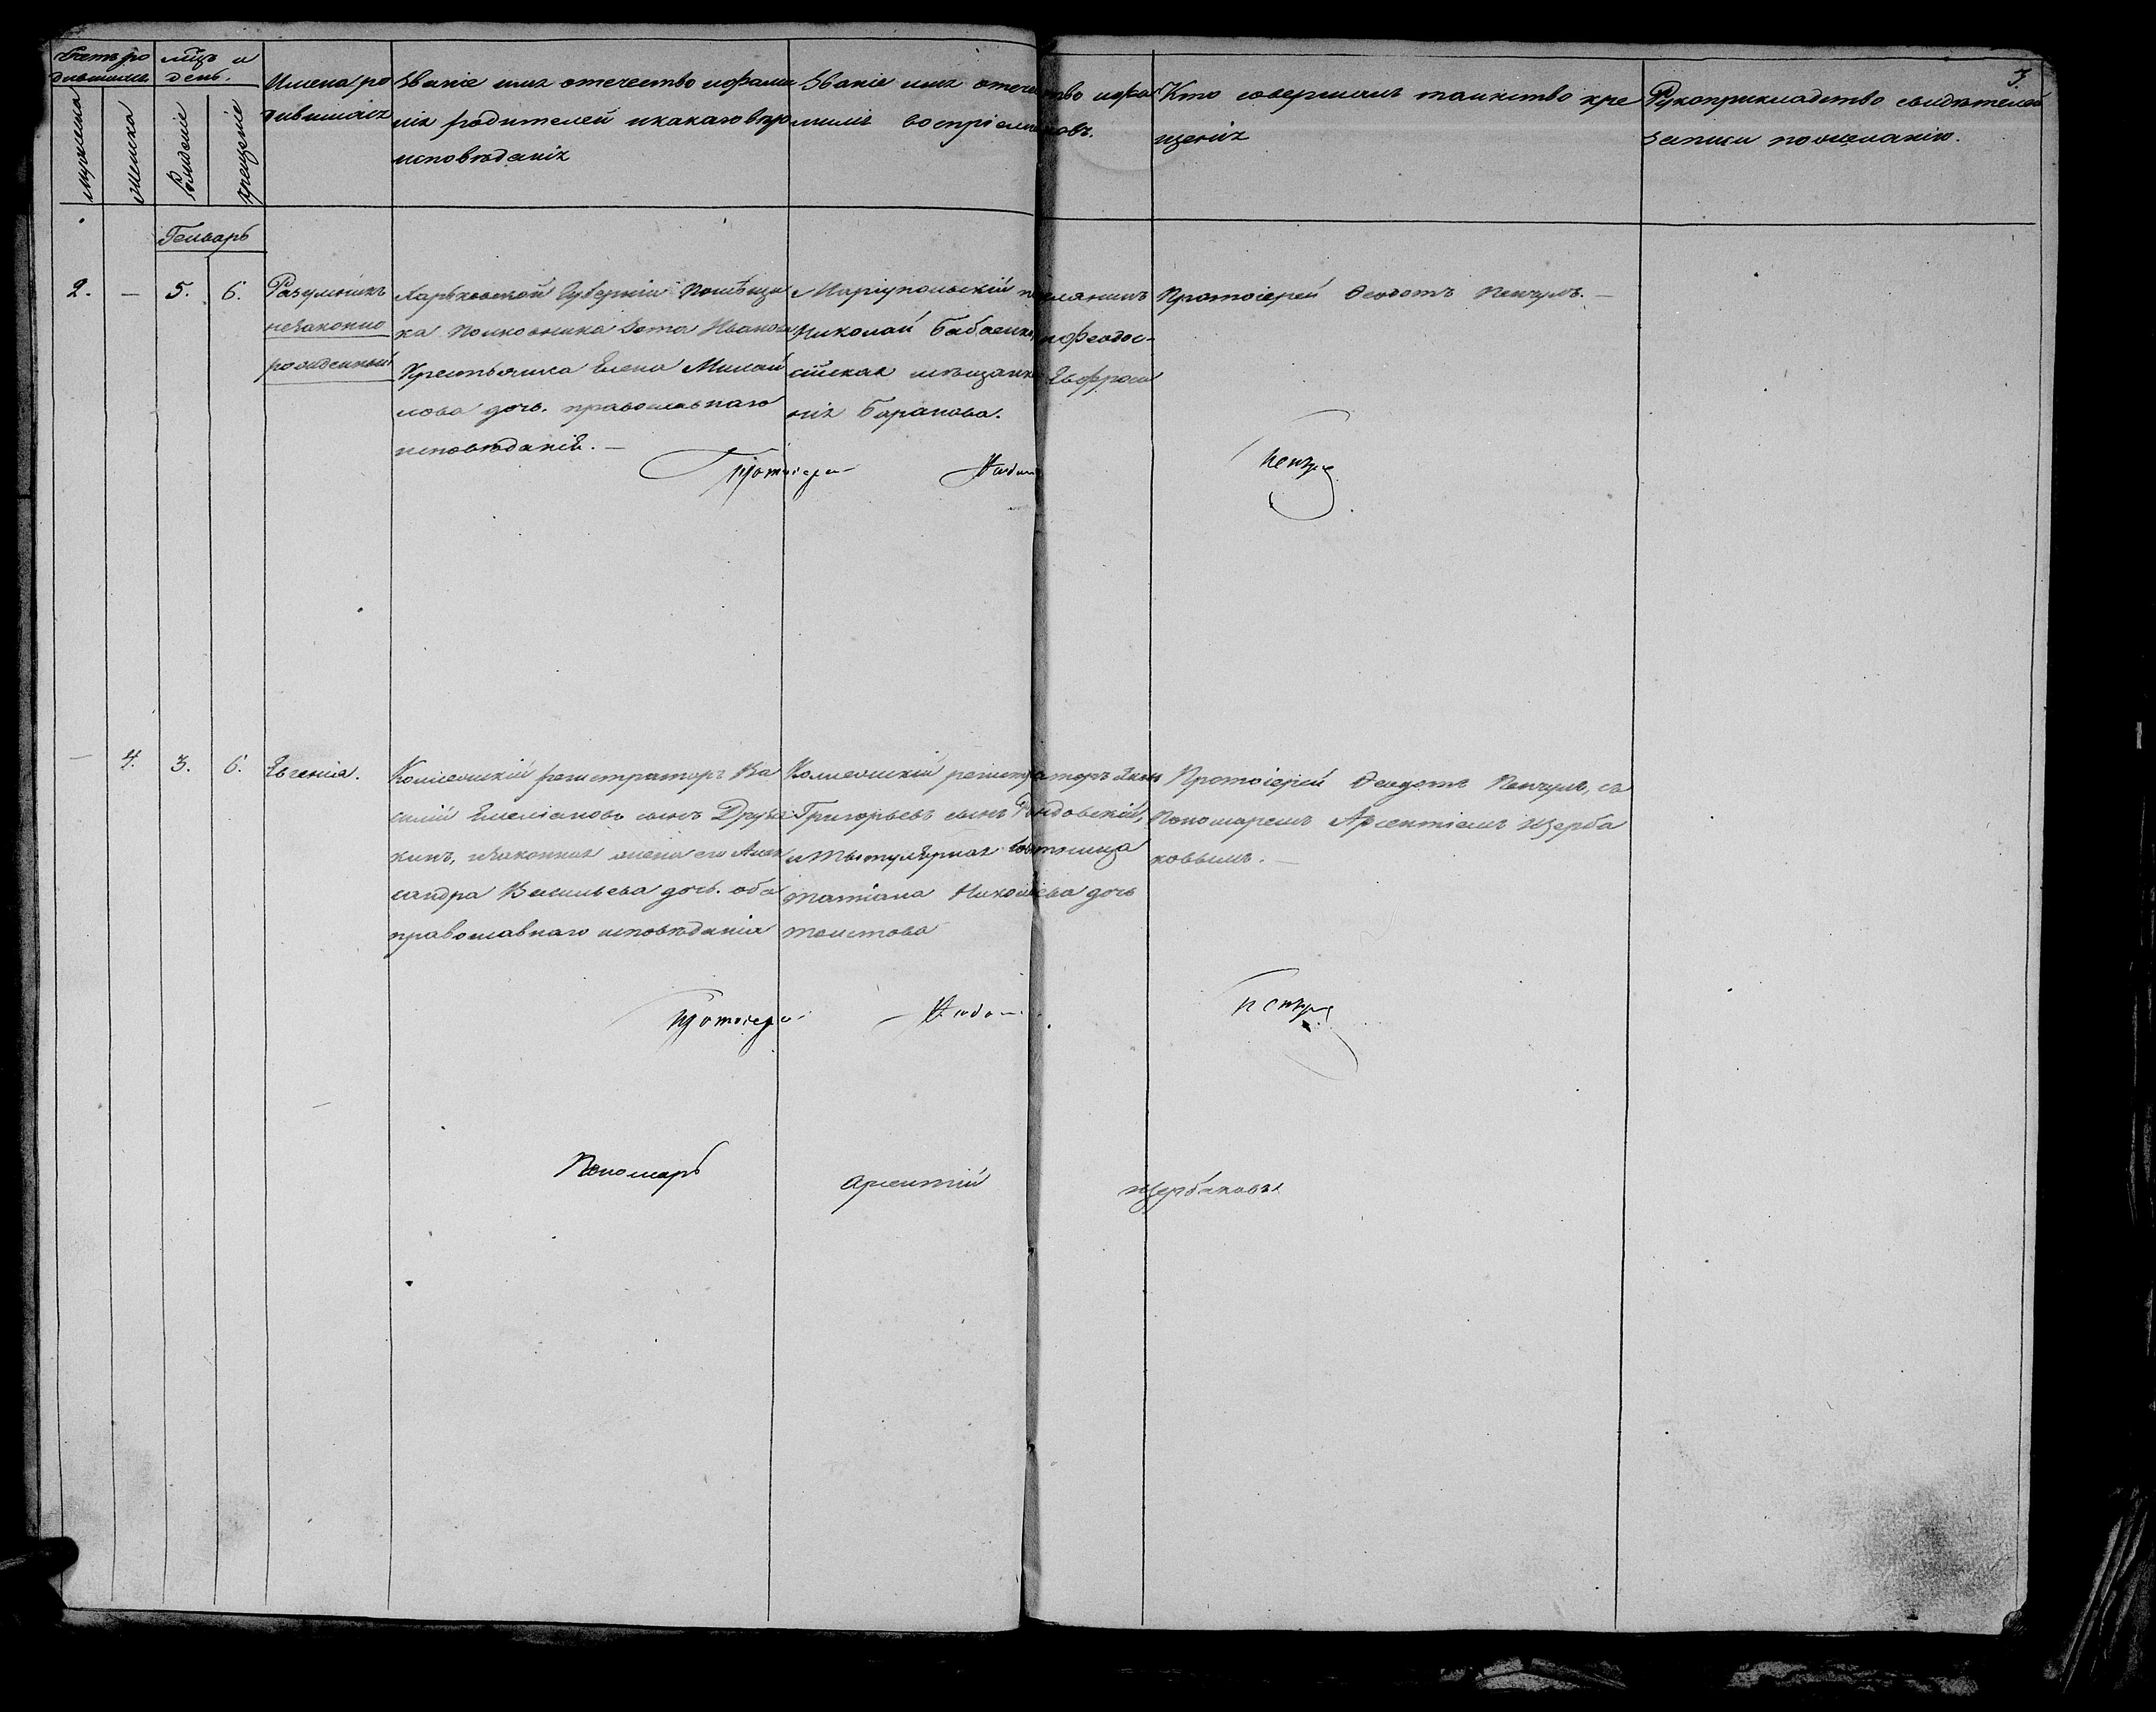 3
Счетъ ро
дившихся.
мцъ и
день.
мужеска
женска
Рожденіе
крещеніе
Имена ро
дившихся
Званіе имя отечество и фами
лія родителей и какаго вѣро
исповѣданія
Званіе имя отечество и фа
милія воспріемниковъ.
Кто совершалъ таинство кре
щенія
Рукоприкладство свидѣтелей
записи по желанію.
Генварь
2. — 5. 6.
Разумникъ
незаконно
рожденный
Харьковской Губерніи Помѣщи
ка Полковника Зота Иванова
Крестьянка Елена Михай
лова дочь. православнаго
исповѣданія. —
Маріупольскій поселянинъ
Николай Бабаенко, и Феодос-
ійская мѣщанка Евфроси
нія Баранова.
Протоіерей Феодотъ Пенчулъ. —
Протоіерей Феодотъ Пенчулъ
— 4. 3. 6.
Евгенія.
Коллежскій регистраторъ Ва
силій Емеліановъ сынъ Друж
кинъ, и законная жена его Алек
сандра Васильева дочь. оба
православнаго исповѣданія
Коллежскій регистраторъ Яковъ
Григорьевъ сынъ,
и Титулярная Совѣтница
Татіана Николаева дочь
Толстова
Протоіерей Феодотъ Пенчулъ, съ
Пономаремъ Арсентіемъ Щерба
ковымъ. —
Протоіерей Феодотъ Пенчулъ
Пономарь Арсентій Щербаковъ